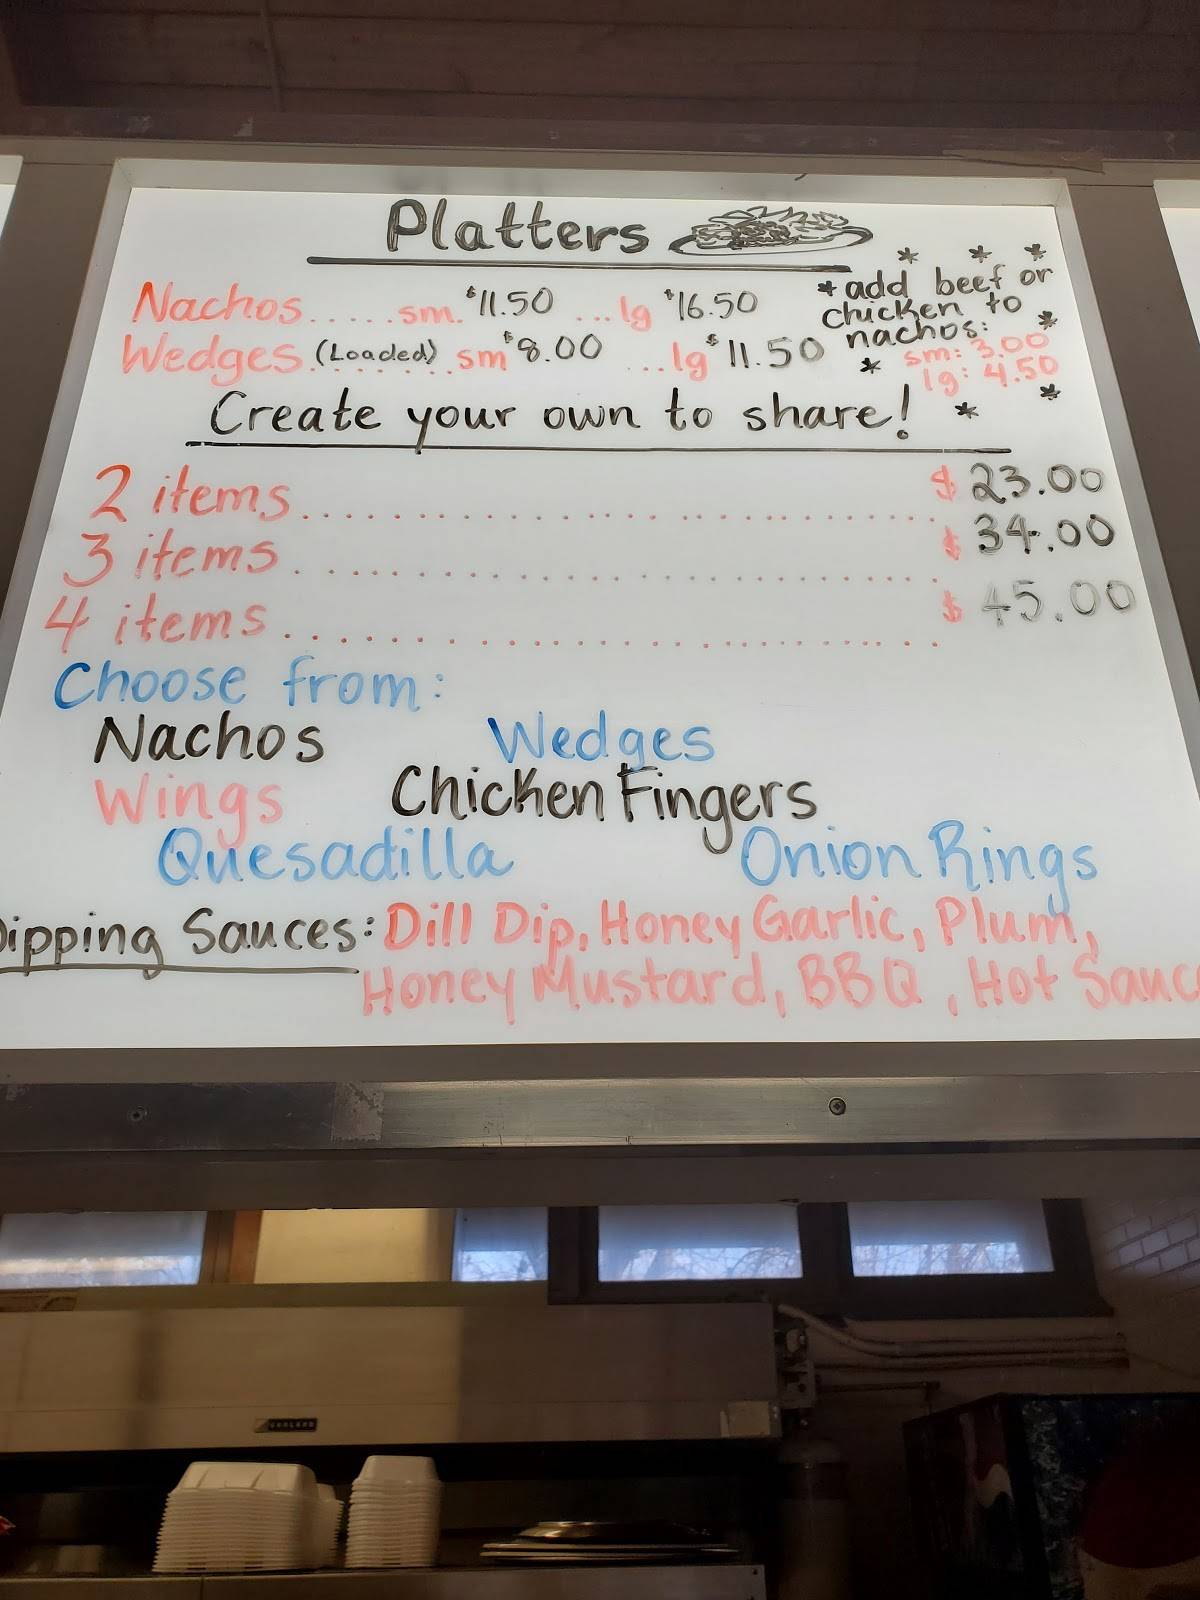 Platters
Nachos.....sm. $11.50 ...lg $16.50
Wedges (Loaded)........sm $8.00 ...lg $11.50
* * *
*add beef or
chicken to
nachos: *
* sm: 3.00
lg: 4.50
*
Create your own to share! *
2 items........................ $23.00
3 items........................ $34.00
4 items........................ $45.00
Choose from:
Nachos Wedges
Wings Chicken Fingers
Quesadilla Onion Rings
Dipping Sauces: Dill Dip, Honey Garlic, Plum,
Honey Mustard, BBQ, Hot Sauc
GARLAND